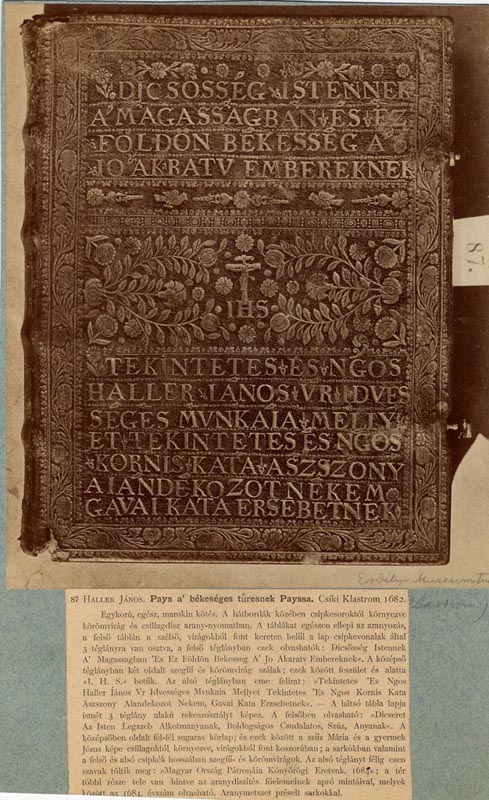 DICSÖSSÉG ISTENNEK
A' MAGASSAGBAN ÉS EZ
FÖLDÖN BÉKESSÉG A'
JÓ AKRATV EMBEREKNEK
IHS
TEKINTETES ÉS NGOS
HALLER IÁNOS VR IDVES
SÉGES MVNKAIA MELLY
ET TEKINTETES ÉS NGOS
KORNIS KATA ASZSZONY
AIANDEKOZOT NEKEM
GAVAI KATA ERSEBETNEK
87.
Erdélyi Museumtu
87 HALLER JÁNOS. Pays a' békeséges tűresnek Payssa. Csiki Klastrom 1682.
Egykorú, egész, marokin kötés. A hátbordák közében csipkesoroktól környezve
körömvirág és csillagdísz arany-nyomatban. A táblákat egészen ellepi az aranyozás,
a felső táblán a szélső, virágokból font kereten belül a lap csipkevonalak által
3 téglányra van osztva, a felső téglányban ezek olvashatók: Dicsösség Istennek
A' Magassagban 'Es Ez Földön Bekesseg A' Jo Akaratv Embereknek«. A középső
téglányban két oldalt szegfü és körömvirág szálak; ezek között feszület és alatta
»I. H. S.« betük. Az alsó téglányban eme felirat: »Tekintetes 'Es Ngos
Haller János Vr Idvességes Mvnkaia Mellyet Tekintetes 'Es Ngos Kornis Kata
Aszszony Aiandekozot Nekem, Gavai Kata Erzsebetnek«. — A hátsó tábla lapja
ismét 3 téglány alakú rekeszosztályt képez. A felsőben olvasható: »Dicseret
Az Isten Legzeb Alkotmanyanak, Boldogságos Csudalatos, Szüz, Anyanak«. A
középsőben oldalt fél-fél sugaras körlap; és ezek között a szüz Mária és a gyermek
Jézus képe csillagoktól környezve, virágokból font koszorúban; a sarkokban valamint
a felső és alsó csipkék hosszában szegfü- és körömvirágok. Az alsó téglányt félig ezen
szavak töltik meg: »Magyar Ország Pátronáia Könyőrögi Eretvnk. 168 «; a tér
többi része tele van hintve az aranydiszítés főelemeinek apró mintáival, melyek
között az 1684. évszám olvasható. Aranymetszet préselt sarkokkal.